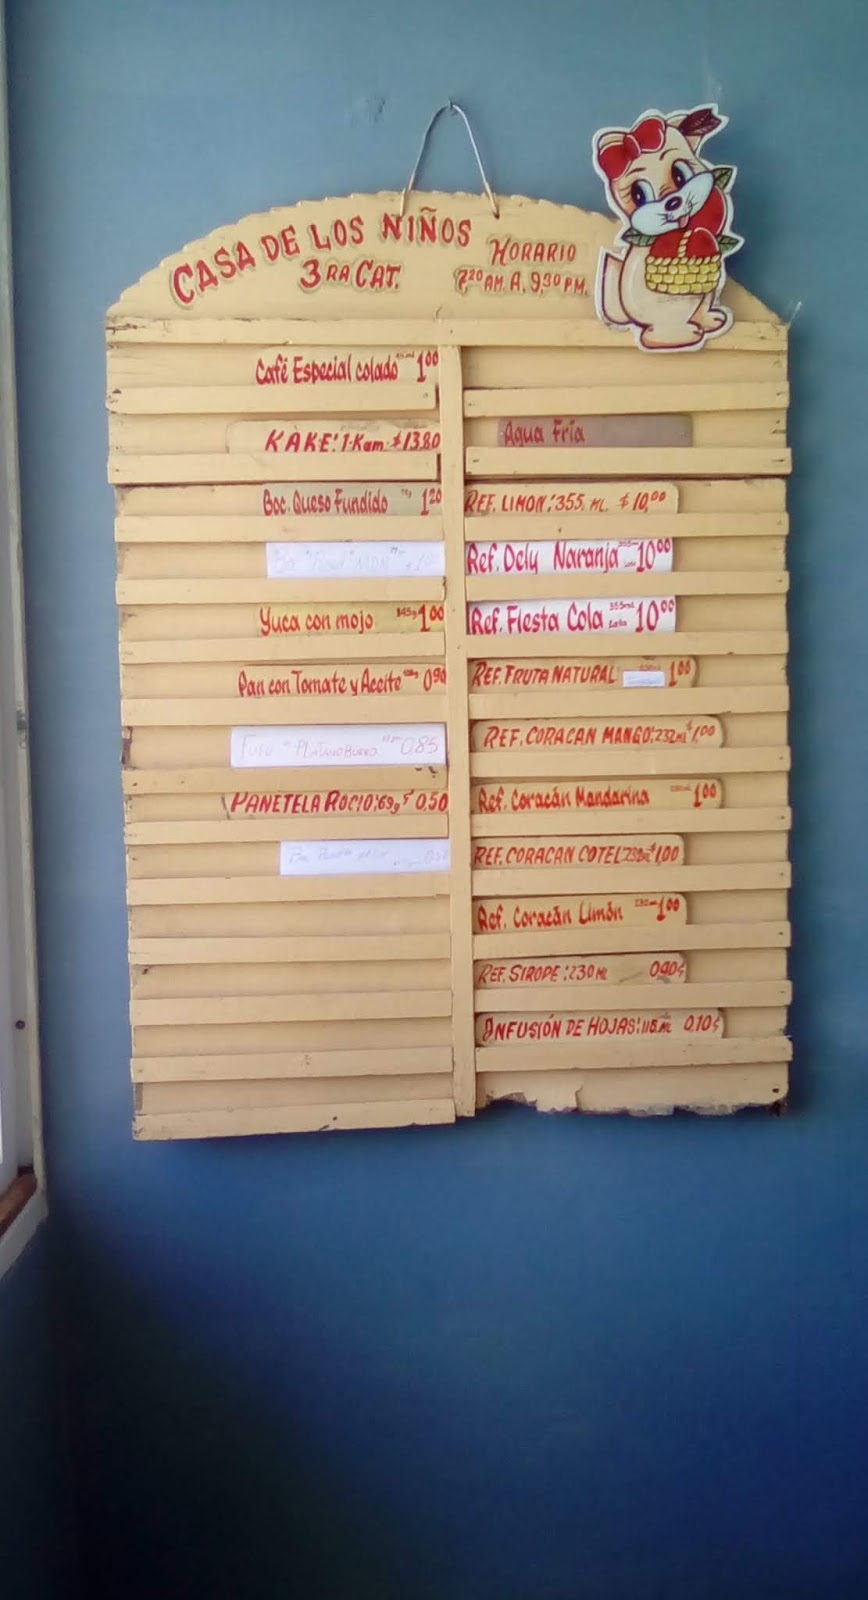 CASA DE LOS NIÑOS
3RA CAT.
HORARIO
7,20 AM. A, 9,30 PM.
Café Especial colado 1 00
KAKE: 1 Kam $13.80
Boc. Queso Fundido 1 20
Yuca con mojo 145g 1 00
Pan con Tomate y Aceite 0 90
FUFU "PLATANO BURRO" 0.85
PANETELA ROCIO: 69g $ 0,50
Agua Fría
REF. LIMON: 355 ML. $ 10,00
Ref. Dely Naranja 355ml Lata 10 00
Ref. Fiesta Cola 355ml Lata 10 00
REF. FRUTA NATURAL 1 00
REF. CORACAN MANGO: 232 ML $1,00
Ref. Coracán Mandarina 1 00
REF. CORACAN COTEL 232 ML $1,00
Ref. Coracán Limón 1 00
REF. SIROPE: 230 ML 0.90¢
INFUSIÓN DE HOJAS: 115 ML 0.10¢